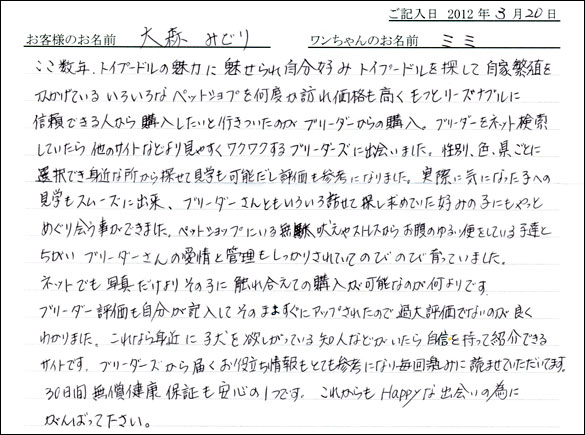 ご記入日 2012年3月20日
お客様のお名前 大森 みどり ワンちゃんのお名前 ミミ
ここ数年、トイプードルの魅力に魅せられ自分好みトイプードルを探して自家繁殖を
心がけているいろいろなペットショップを何度か訪れ価格も高くもっとリーズナブルに
信頼できる人から購入したいと行きついたのがブリーダーからの購入。ブリーダーをネット検索
していたら他のサイトなどより見やすくワクワクするブリーダーズに出会いました。性別、色、県ごとに
選択でき身近な所から探せて見学も可能だし評価も参考になりました。実際に気になった子への
見学もスムーズに出来、ブリーダーさんともいろいろ話せて探し求めていた好みの子にもやっと
めぐり会う事ができました。ペットショップにいる無駄吠えやストレスからお腹のゆるい便をしている子達と
ちがいブリーダーさんの愛情と管理もしっかりされていてのびのび育っていました。
ネットでも写真だけよりその子に触れ合えての購入が可能なのが何よりです。
ブリーダー評価も自分が記入してそのまますぐにアップされたので過大評価でないのが良く
わかりました。これなら身近に子犬を欲しがっている知人などがいたら自信を持って紹介できる
サイトです。ブリーダーズから届くお役立ち情報もとても参考になり毎回熱心に読ませていただいてます。
30日間無償健康保証も安心の1つです。これからもHappyな出会いの為に
がんばって下さい。